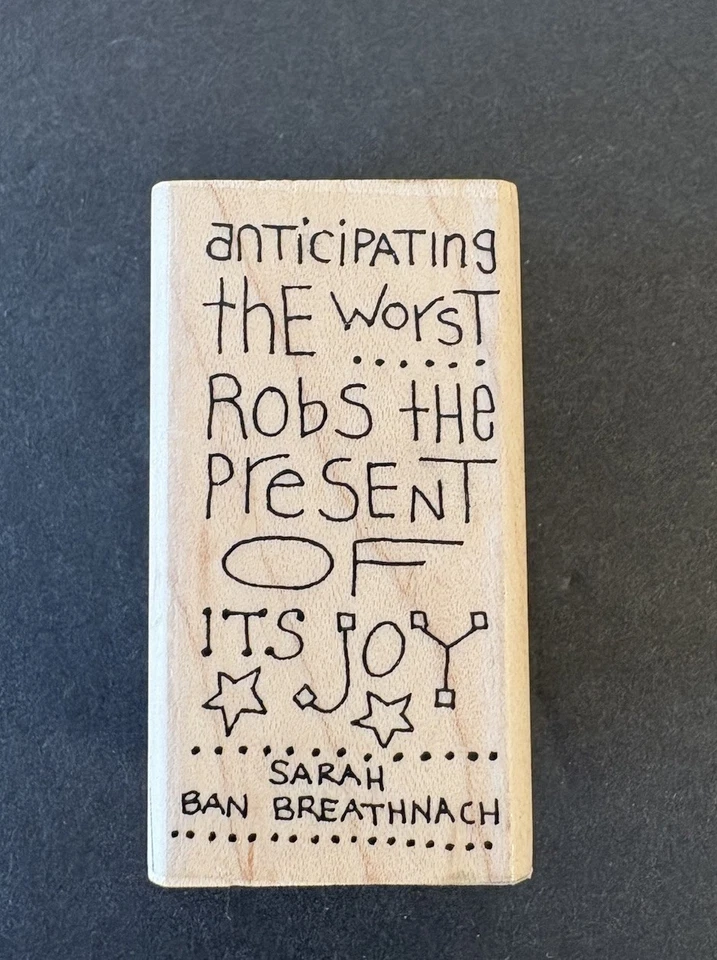 anTicipATIng
thE WorsT
RobS tHe
PreSENT
OF
ITS JOY
SARAH
BAN BREATHNACH